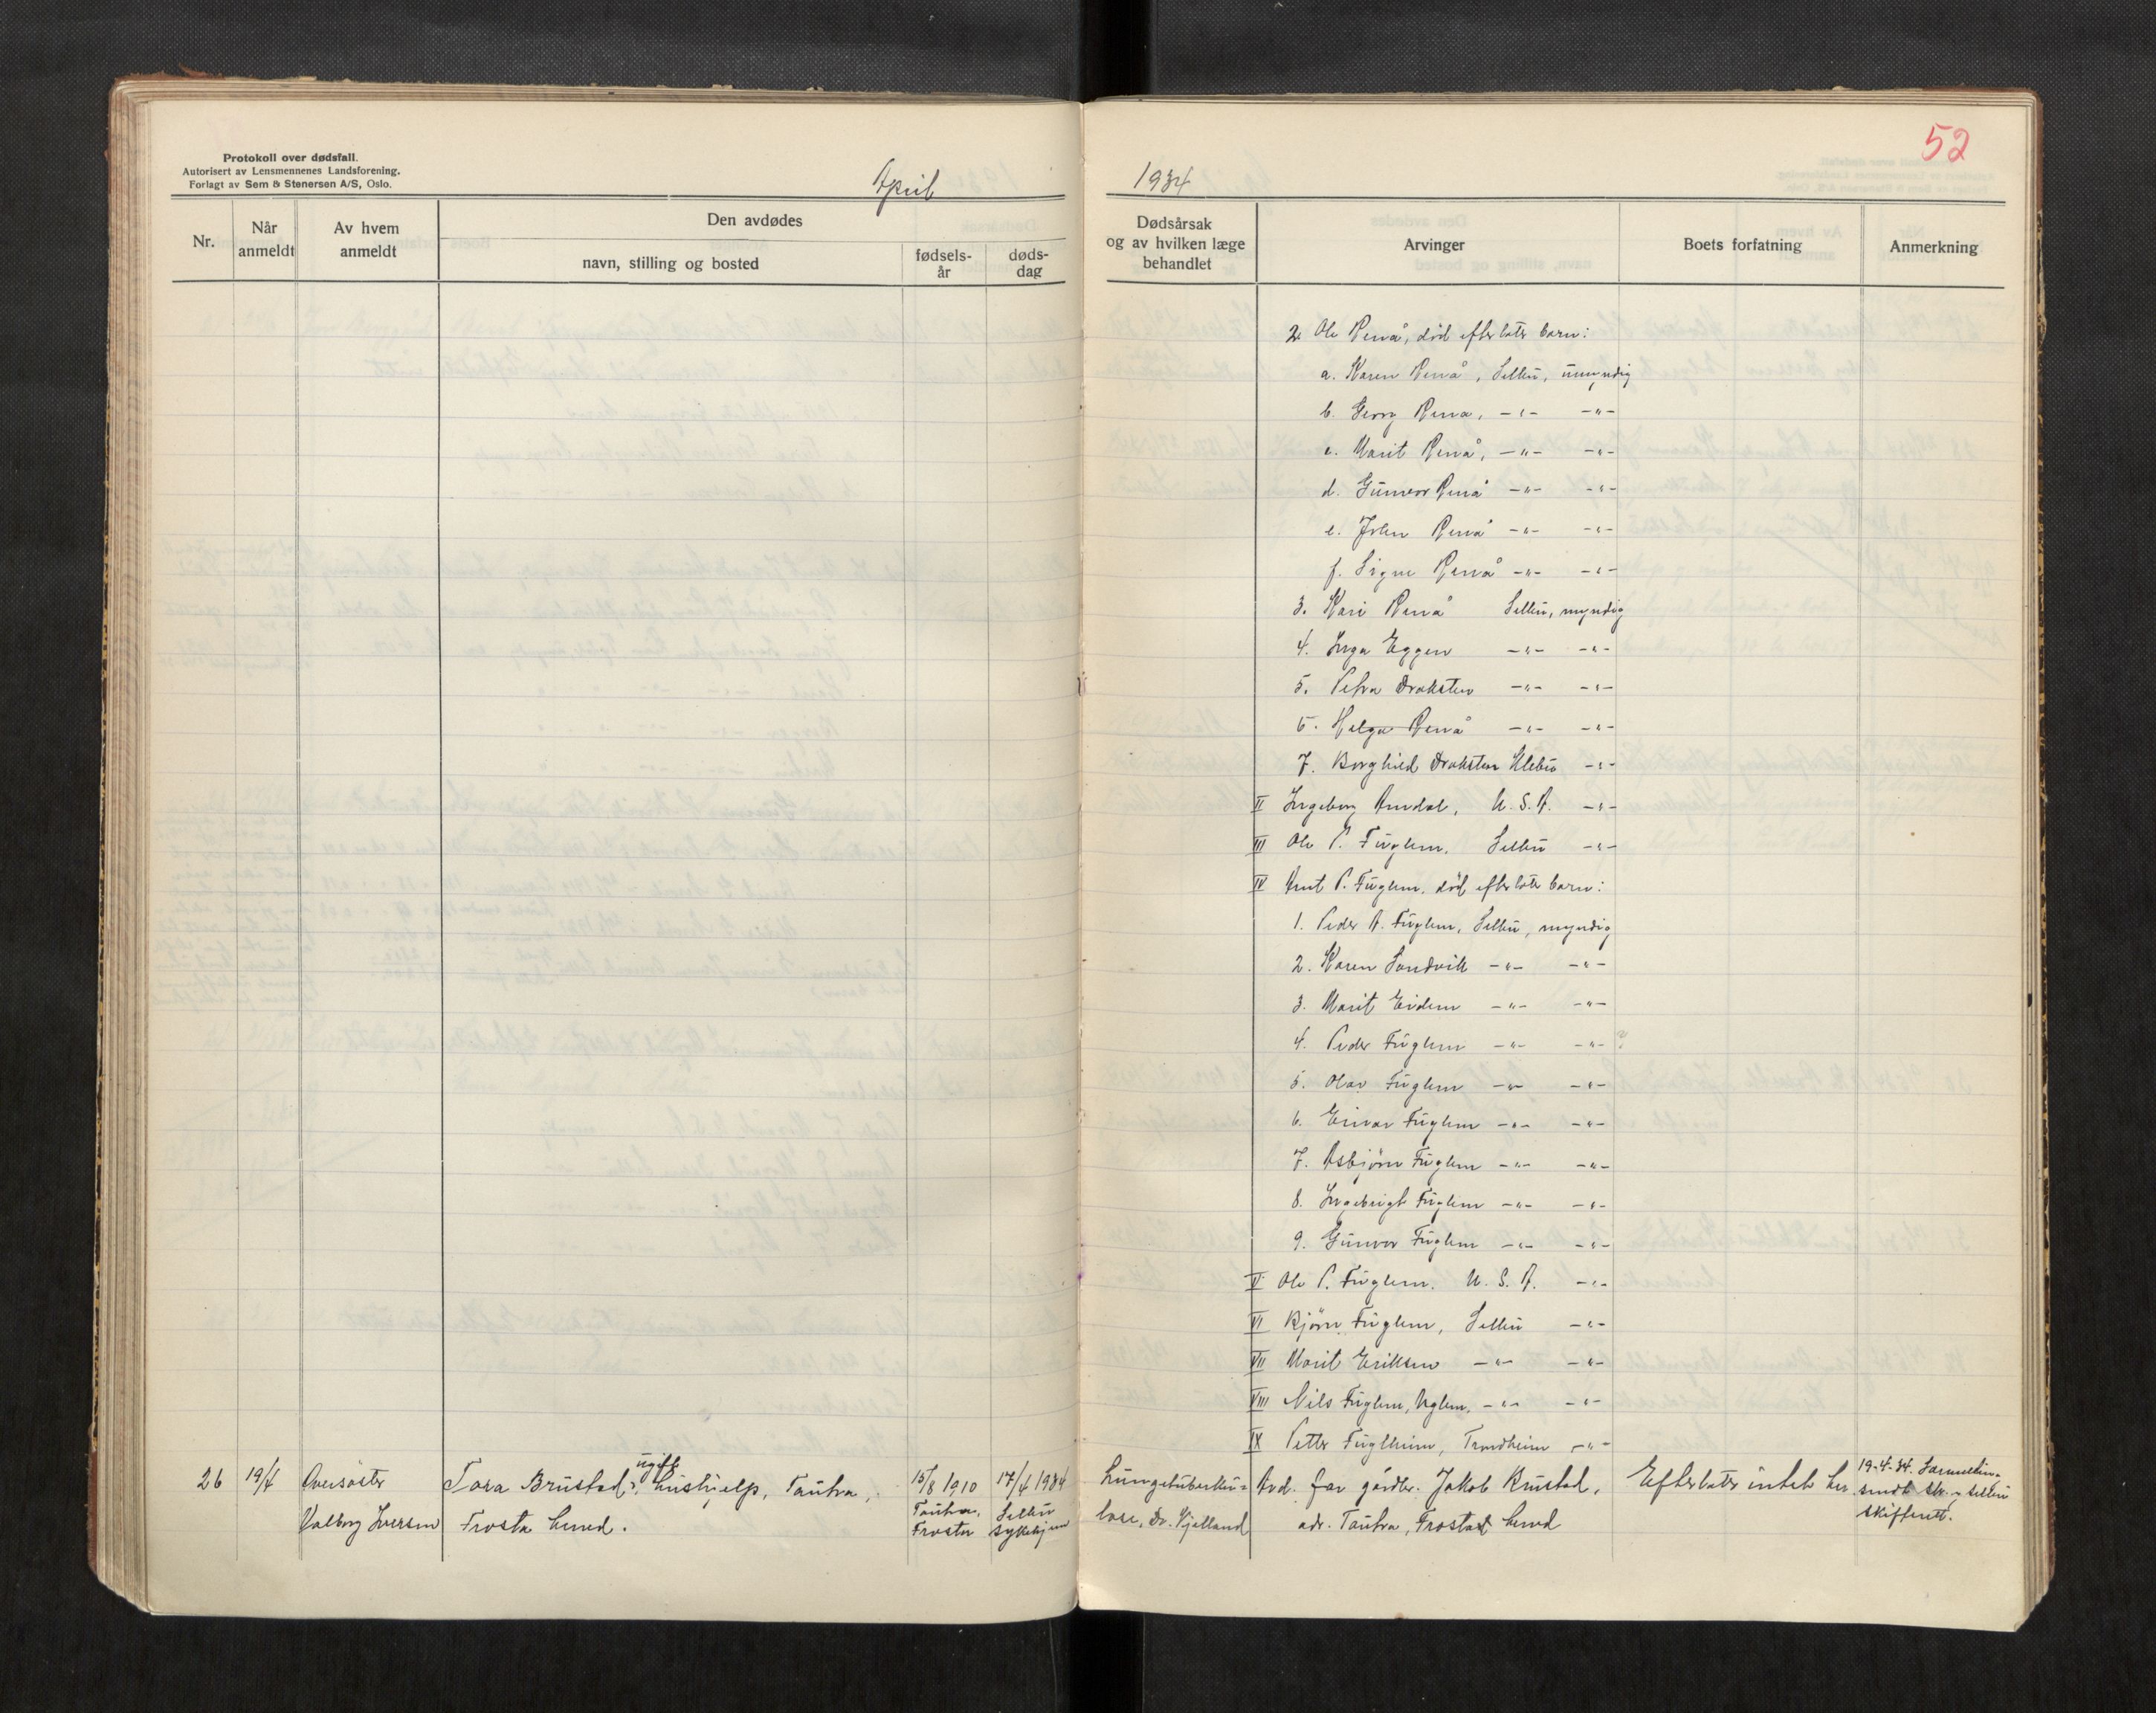 52
Protokoll over dødsfall.
Autorisert av Lensmennenes Landsforening.
Forlagt av Sem & Stenersen A/S, Oslo.
April 1934
Nr.
Når anmeldt
Av hvem anmeldt
Den avdødes
navn, stilling og bosted
fødsels-år
døds-dag
Dødsårsak og av hvilken læge behandlet
Arvinger
Boets forfatning
Anmerkning
2. Ole Renå, død efterlater barn:
a. Karen Renå, Selbu, umyndig
b. Georg Renå, -"- -"-
c. Marit Renå, -"- -"-
d. Gunvor Renå -"- -"-
e. John Renå -"- -"-
f. Signe Renå -"- -"-
3. Kari Renå Selbu, myndig
4. Inga Eggen -"- -"-
5. Petra Draksten -"- -"-
6. Helga Renå -"- -"-
7. Borghild Draksten Klebu -"-
II Ingeborg Amdal, U.S.A. -"-
III Ole P. Fuglem, Selbu -"-
IV Arnt P. Fuglem, død efterlater barn:
1. Peder A. Fuglem, Selbu, myndig
2. Karen Sandvik -"- -"-
3. Marit Eidem -"- -"-
4. Peder Fuglem -"- -"- ?
5. Olav Fuglem -"- -"-
6. Einar Fuglem -"- -"-
7. Asbjørn Fuglem -"- -"-
8. Ingebrigt Fuglem -"- -"-
9. Gunvor Fuglem -"- -"-
V Ole P. Fuglem, U.S.A. -"-
VI Bjørn Fuglem, Selbu -"-
VII Marit Eriksen -"- -"-
VIII Nils Fuglem, Uglem, -"- -"-
IX Petter Fuglheim, Trondheim -"-
26 19/4 Oversøster Tora Brustad, ugift hushjelp, Tautra, 15/8 1910 17/4 1934 Lungetuberku= Avd. far gårdbr. Jakob Brustad, Efterlater intet her. 19-4-34. Sorenskr.
Valborg Iversen Frosta herred. Tautra, Frosta Selbu sykehjem lose, Dr. Kjelland adr. Tautra, Frosta herred sendt Selbu
skifterett.